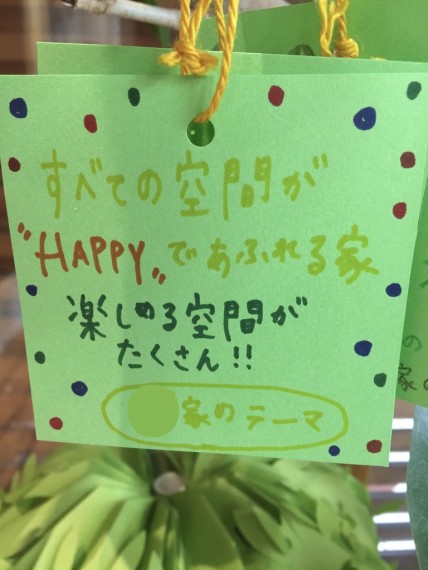 すべての空間が
"HAPPY"であふれる家
楽しめる空間が
たくさん!!
家のテーマ
の
家の